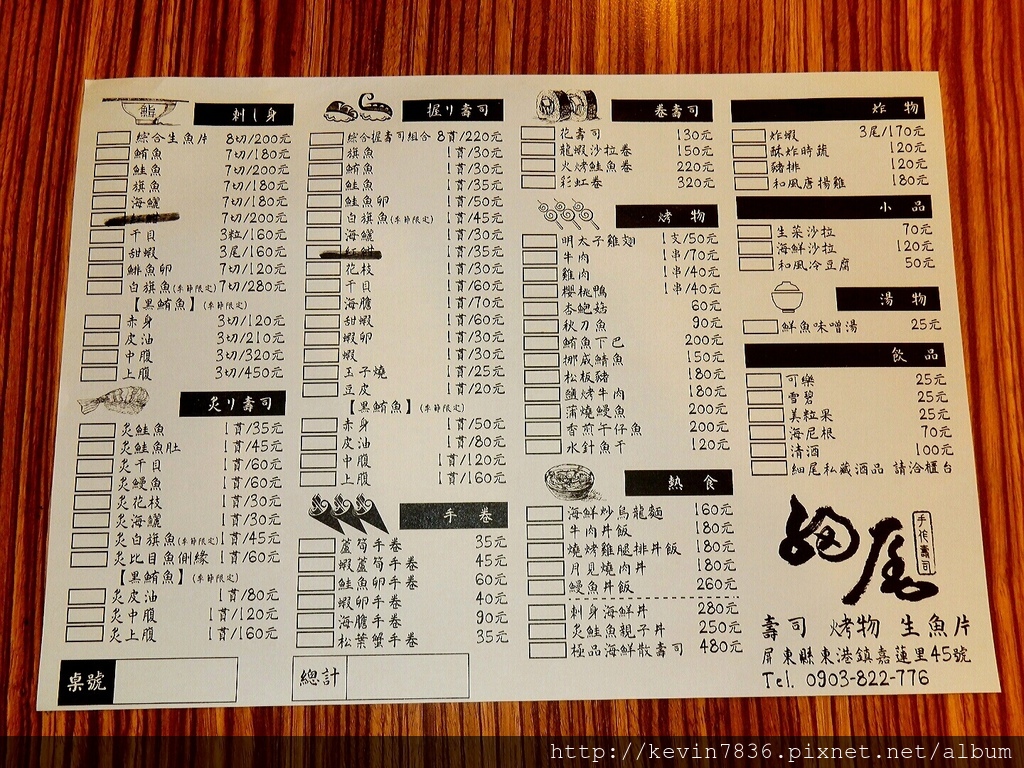 鮨
刺し身
綜合生魚片 8切/200元
鮪魚 7切/180元
鮭魚 7切/200元
旗魚 7切/180元
海鱺 7切/180元
7切/200元
干貝 3粒/160元
甜蝦 3尾/160元
鯡魚卵 7切/120元
白旗魚(季節限定) 7切/280元
【黑鮪魚】(季節限定)
赤身 3切/120元
皮油 3切/210元
中腹 3切/320元
上腹 3切/450元
炙り壽司
炙鮭魚 1貫/35元
炙鮭魚肚 1貫/45元
炙干貝 1貫/60元
炙鰻魚 1貫/60元
炙花枝 1貫/30元
炙海鱺 1貫/30元
炙白旗魚(季節限定) 1貫/45元
炙比目魚側緣 1貫/60元
【黑鮪魚】(季節限定)
炙皮油 1貫/80元
炙中腹 1貫/120元
炙上腹 1貫/160元
桌號
握り壽司
綜合握壽司組合 8貫/220元
旗魚 1貫/30元
鮪魚 1貫/30元
鮭魚 1貫/35元
鮭魚卵 1貫/50元
白旗魚(季節限定) 1貫/45元
海鱺 1貫/30元
紅魽 1貫/35元
花枝 1貫/30元
干貝 1貫/60元
海膽 1貫/70元
甜蝦 1貫/60元
蝦卵 1貫/30元
蝦 1貫/30元
玉子燒 1貫/25元
豆皮 1貫/20元
【黑鮪魚】(季節限定)
赤身 1貫/50元
皮油 1貫/80元
中腹 1貫/120元
上腹 1貫/160元
手卷
蘆筍手卷 35元
蝦蘆筍手卷 45元
鮭魚卵手卷 60元
蝦卵手卷 40元
海膽手卷 90元
松葉蟹手卷 35元
總計
卷壽司
花壽司 130元
龍蝦沙拉卷 150元
火烤鮭魚卷 220元
彩虹卷 320元
烤物
明太子雞翅 1支/50元
牛肉 1串/70元
雞肉 1串/40元
櫻桃鴨 1串/40元
杏鮑菇 60元
秋刀魚 90元
鮪魚下巴 200元
挪威鯖魚 150元
松板豬 180元
鹽烤牛肉 180元
蒲燒鰻魚 200元
香煎午仔魚 200元
水針魚干 120元
熱食
海鮮炒烏龍麵 160元
牛肉丼飯 180元
燒烤雞腿排丼飯 180元
月見燒肉丼 180元
鰻魚丼飯 260元
刺身海鮮丼 280元
炙鮭魚親子丼 250元
極品海鮮散壽司 480元
炸物
炸蝦 3尾/170元
酥炸時蔬 120元
豬排 120元
和風唐揚雞 180元
小品
生菜沙拉 70元
海鮮沙拉 120元
和風冷豆腐 50元
湯物
鮮魚味噌湯 25元
飲品
可樂 25元
雪碧 25元
美粒果 25元
海尼根 70元
清酒 100元
細尾私藏酒品 請洽櫃台
細尾
手作壽司
壽司 烤物 生魚片
屏東縣東港鎮嘉蓮里45號
Tel. 0903-822-776
http://kevin7836.pixnet.net/album